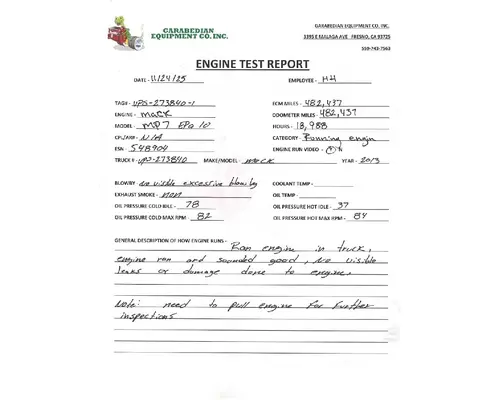 GARABEDIAN
EQUIPMENT CO. INC.
GARABEDIAN EQUIPMENT CO. INC.
1395 E MALAGA AVE FRESNO, CA 93725
559-742-7563
ENGINE TEST REPORT
DATE - 11/24/25 EMPLOYEE - HH
TAG# - UPS-273840-1 ECM MILES - 482,437
ENGINE - MACK ODOMETER MILES - 482,437
MODEL - MP7 EPA 10 HOURS - 18,988
CPL/AR# - N/A CATEGORY - Running engin
ESN - 548904 ENGINE RUN VIDEO - Y/N
TRUCK # - UPS-273840 MAKE/MODEL - MACK YEAR - 2013
BLOWBY - no visible excessive blow by COOLANT TEMP -
EXHAUST SMOKE - non OIL TEMP -
OIL PRESSURE COLD IDLE - 78 OIL PRESSURE HOT IDLE - 37
OIL PRESSURE COLD MAX RPM - 82 OIL PRESSURE HOT MAX RPM - 84
GENERAL DESCRIPTION OF HOW ENGINE RUNS - Ran engine in truck,
engine ran and sounded good, No visible
leaks or damage done to engine.
Note: need to pull engine for further
inspections